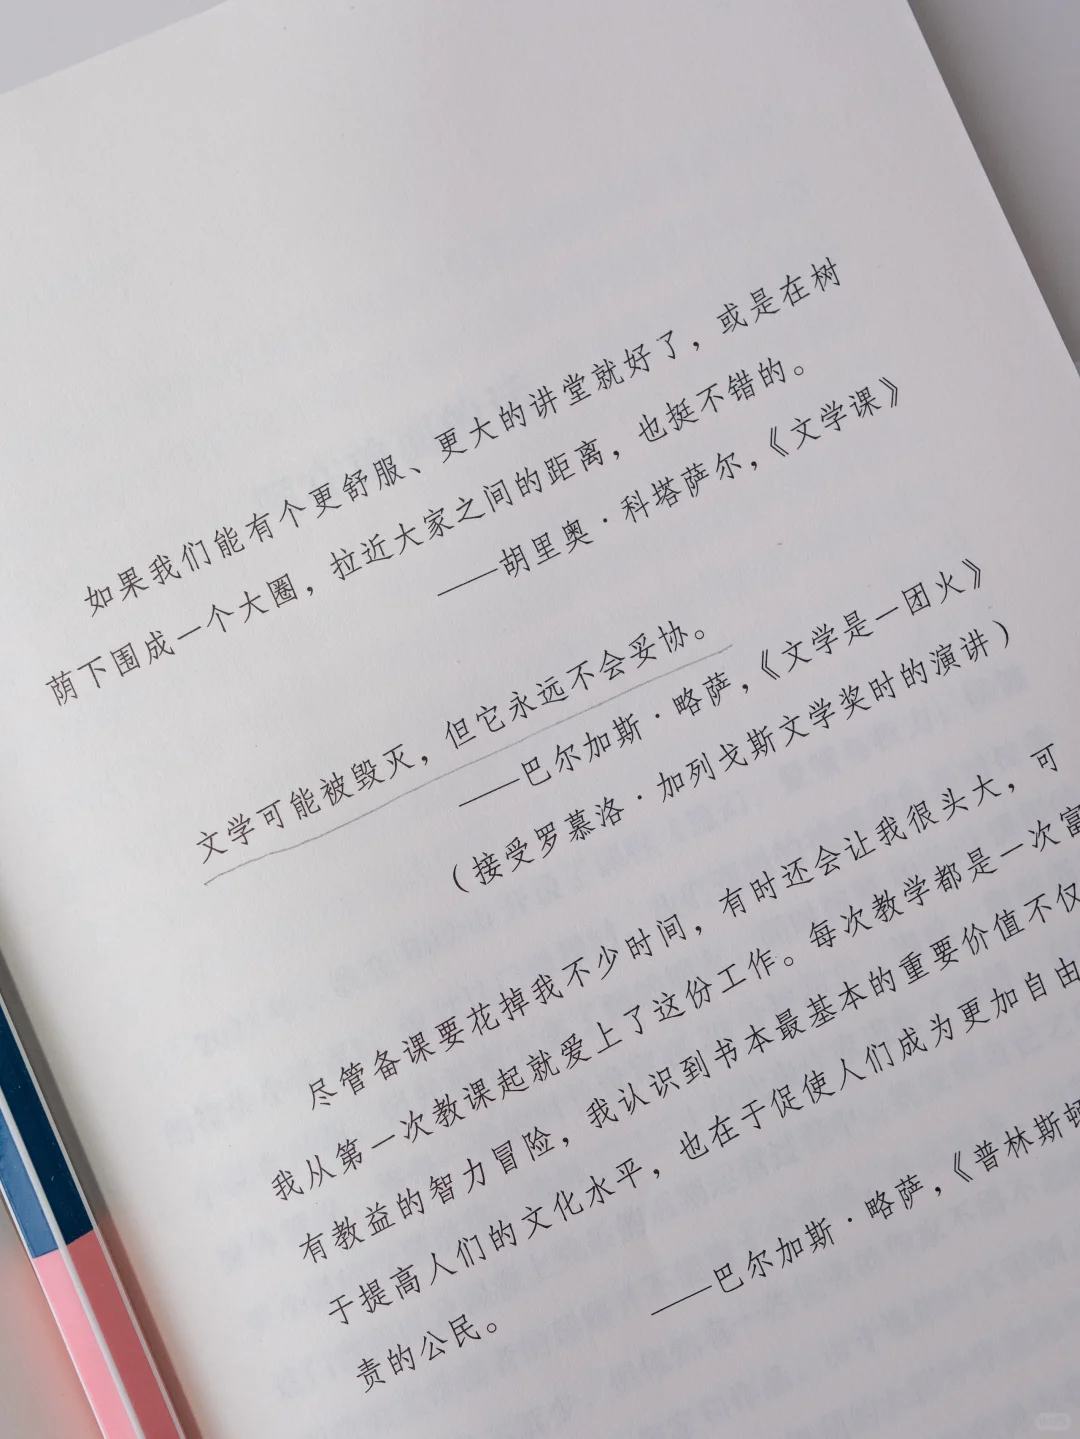 如果我们能有个更舒服、更大的讲堂就好了，或是在树
荫下围成一个大圈，拉近大家之间的距离，也挺不错的。
——胡里奥·科塔萨尔，《文学课》
文学可能被毁灭，但它永远不会妥协。
——巴尔加斯·略萨，《文学是一团火》
（接受罗慕洛·加列戈斯文学奖时的演讲）
尽管备课要花掉我不少时间，有时还会让我很头大，可
我从第一次教课起就爱上了这份工作。每次教学都是一次富
有教益的智力冒险，我认识到书本最基本的重要价值不仅
于提高人们的文化水平，也在于促使人们成为更加自由
责的公民。
——巴尔加斯·略萨，《普林斯顿